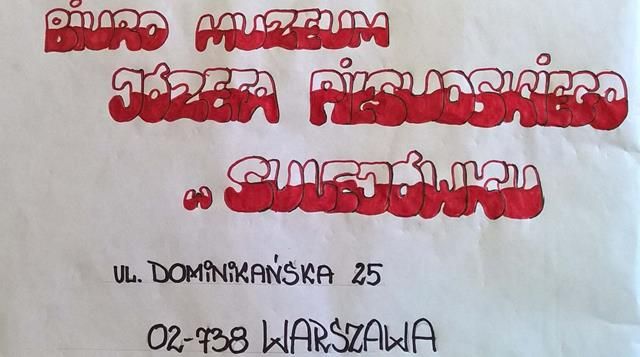 BIURO MUZEUM
JÓZEFA PIŁSUDSKIEGO
w SULEJÓWKU
UL. DOMINIKAŃSKA 25
02-738 WARSZAWA